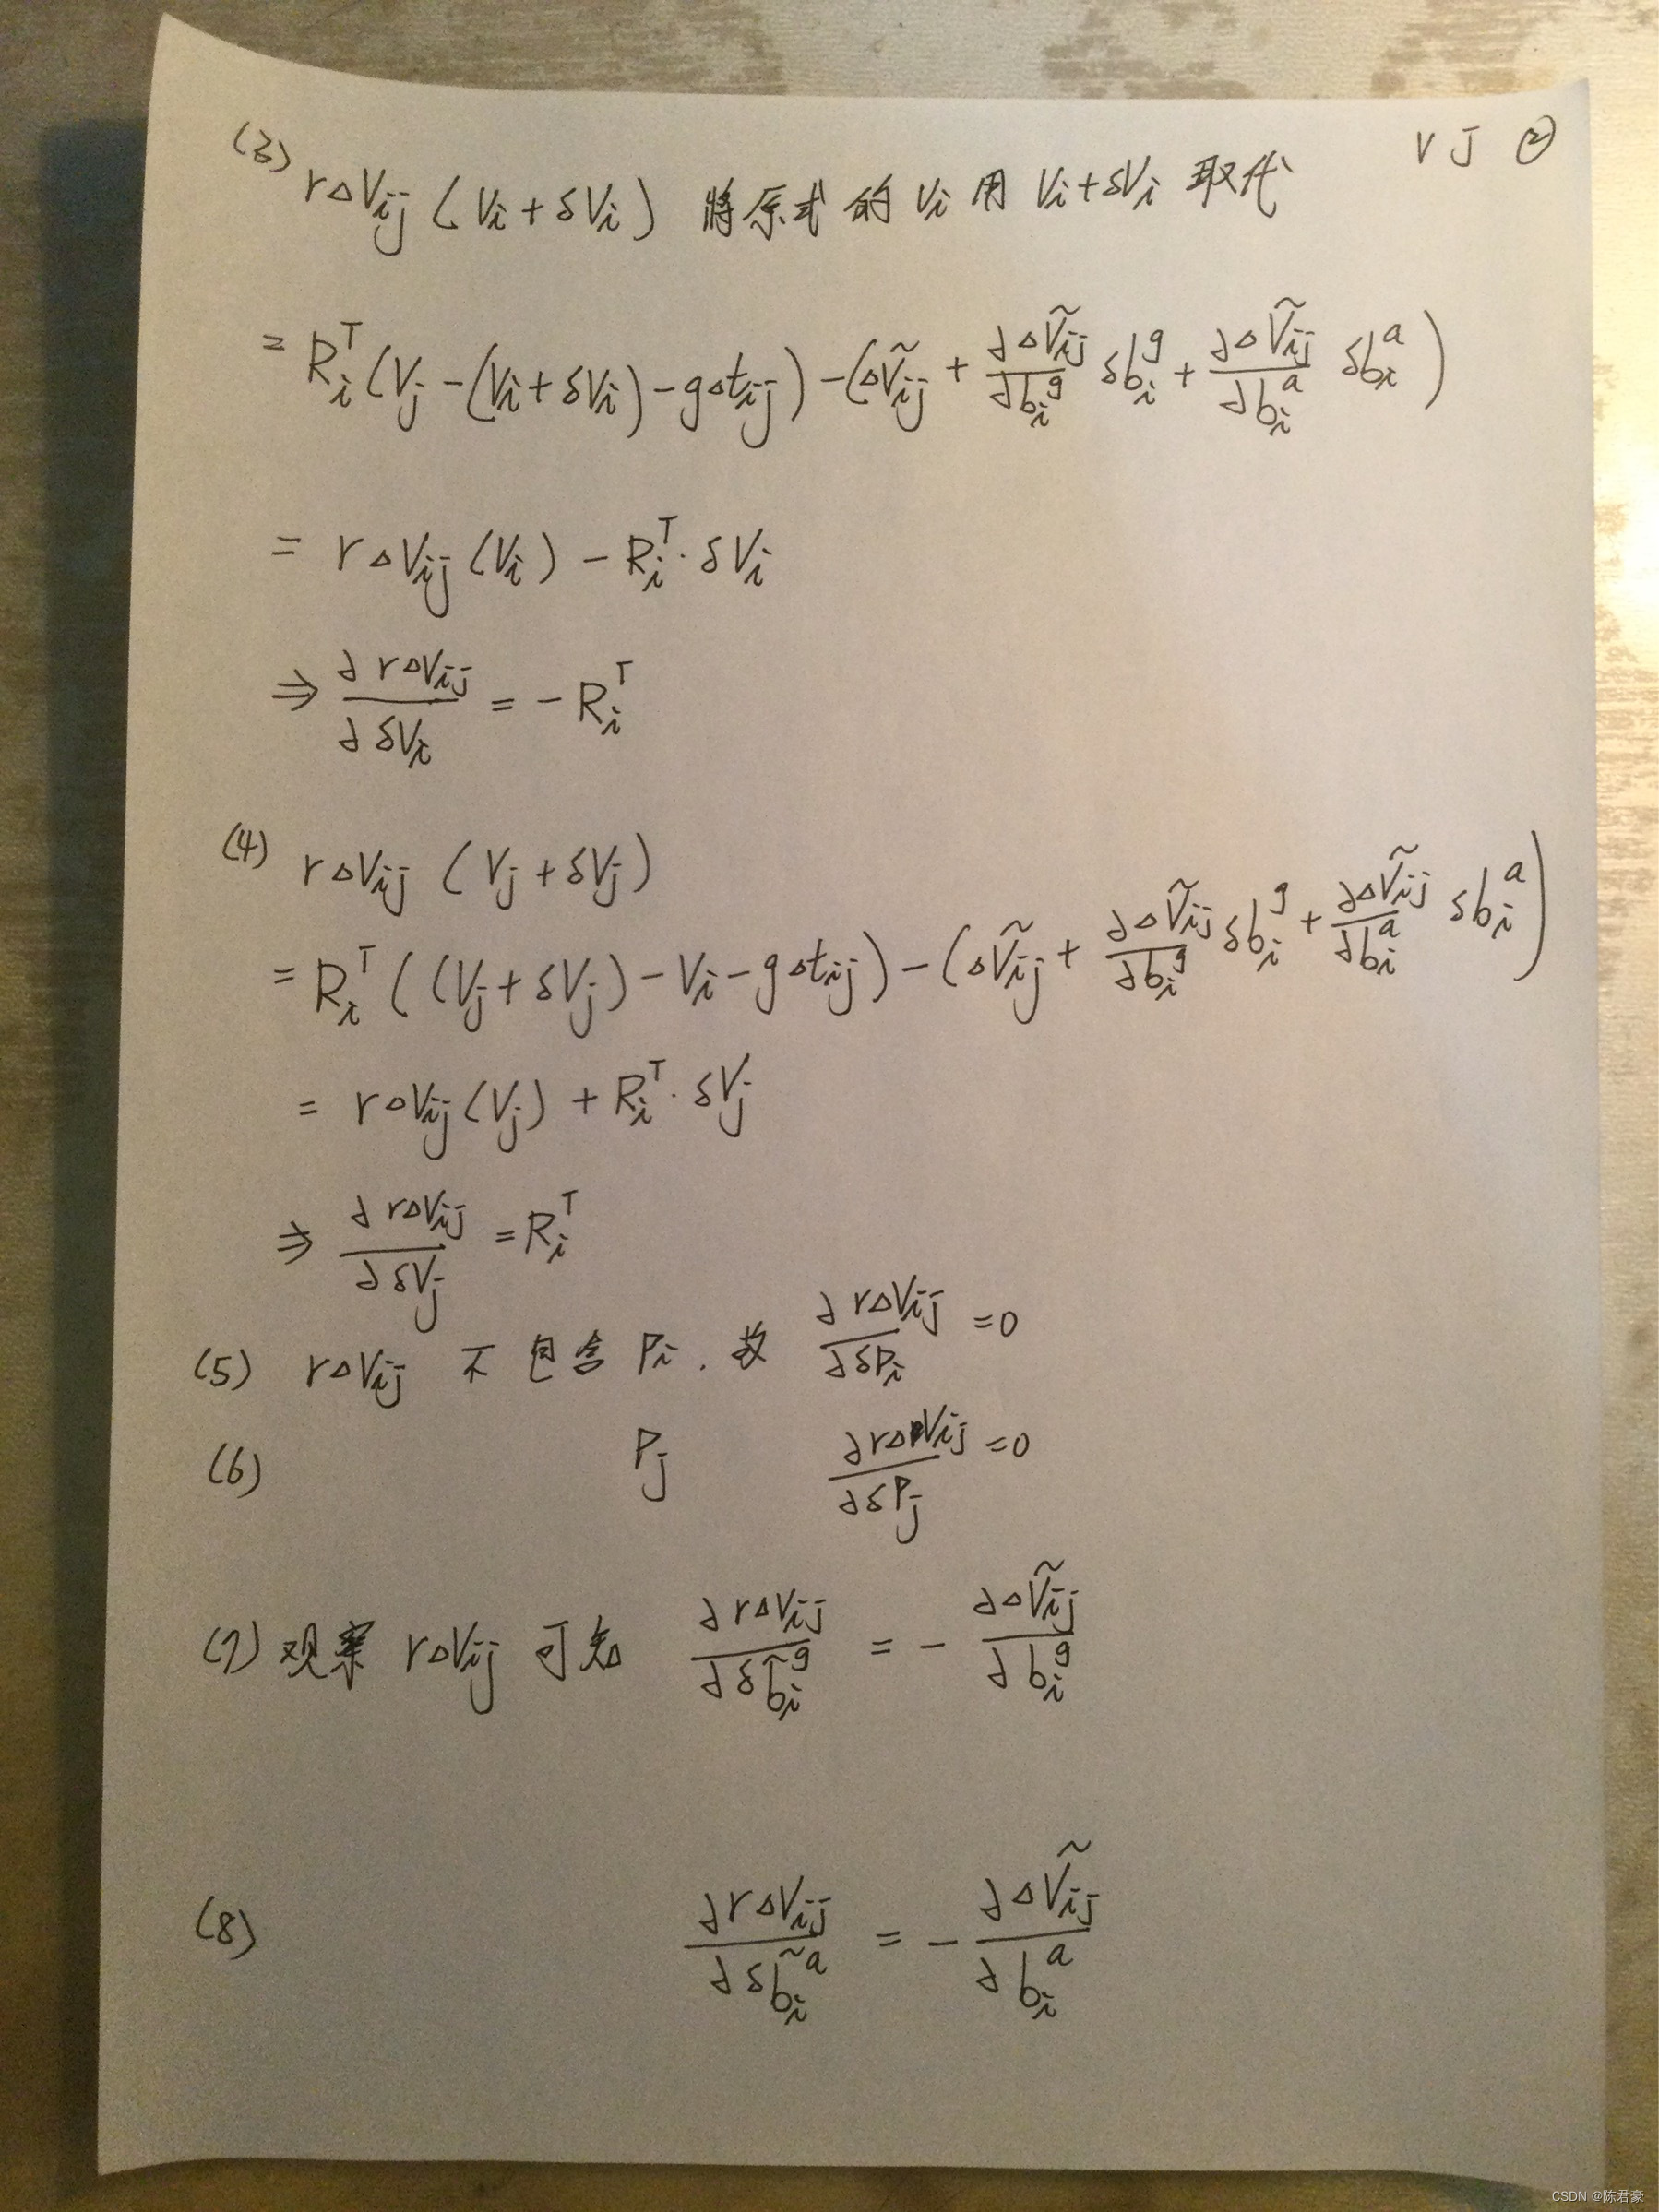 V J ②
(3) r△Vij (Vi + δVi) 将原式的 Vi 用 Vi+δVi 取代
= Rᵢᵀ (Vj - (Vi + δVi) - g△tij) - (△Ṽij + ∂△Ṽij/∂bᵢᵍ δbᵢᵍ + ∂△Ṽij/∂bᵢᵃ δbᵢᵃ)
= r△Vij (Vi) - Rᵢᵀ · δVi
⇒ ∂r△Vij/∂δVi = - Rᵢᵀ
(4) r△Vij (Vj + δVj)
= Rᵢᵀ ((Vj + δVj) - Vi - g△tij) - (△Ṽij + ∂△Ṽij/∂bᵢᵍ δbᵢᵍ + ∂△Ṽij/∂bᵢᵃ δbᵢᵃ)
= r△Vij (Vj) + Rᵢᵀ · δVj
⇒ ∂r△Vij/∂δVj = Rᵢᵀ
(5) r△Vij 不包含 Pi . 故 ∂r△Vij/∂δPi = 0
(6) Pj ∂r△Vij/∂δPj = 0
(7) 观察 r△Vij 可知 ∂r△Vij/∂δb̃ᵢᵍ = - ∂△Ṽij/∂bᵢᵍ
(8) ∂r△Vij/∂δb̃ᵢᵃ = - ∂△Ṽij/∂bᵢᵃ
CSDN @陈君豪